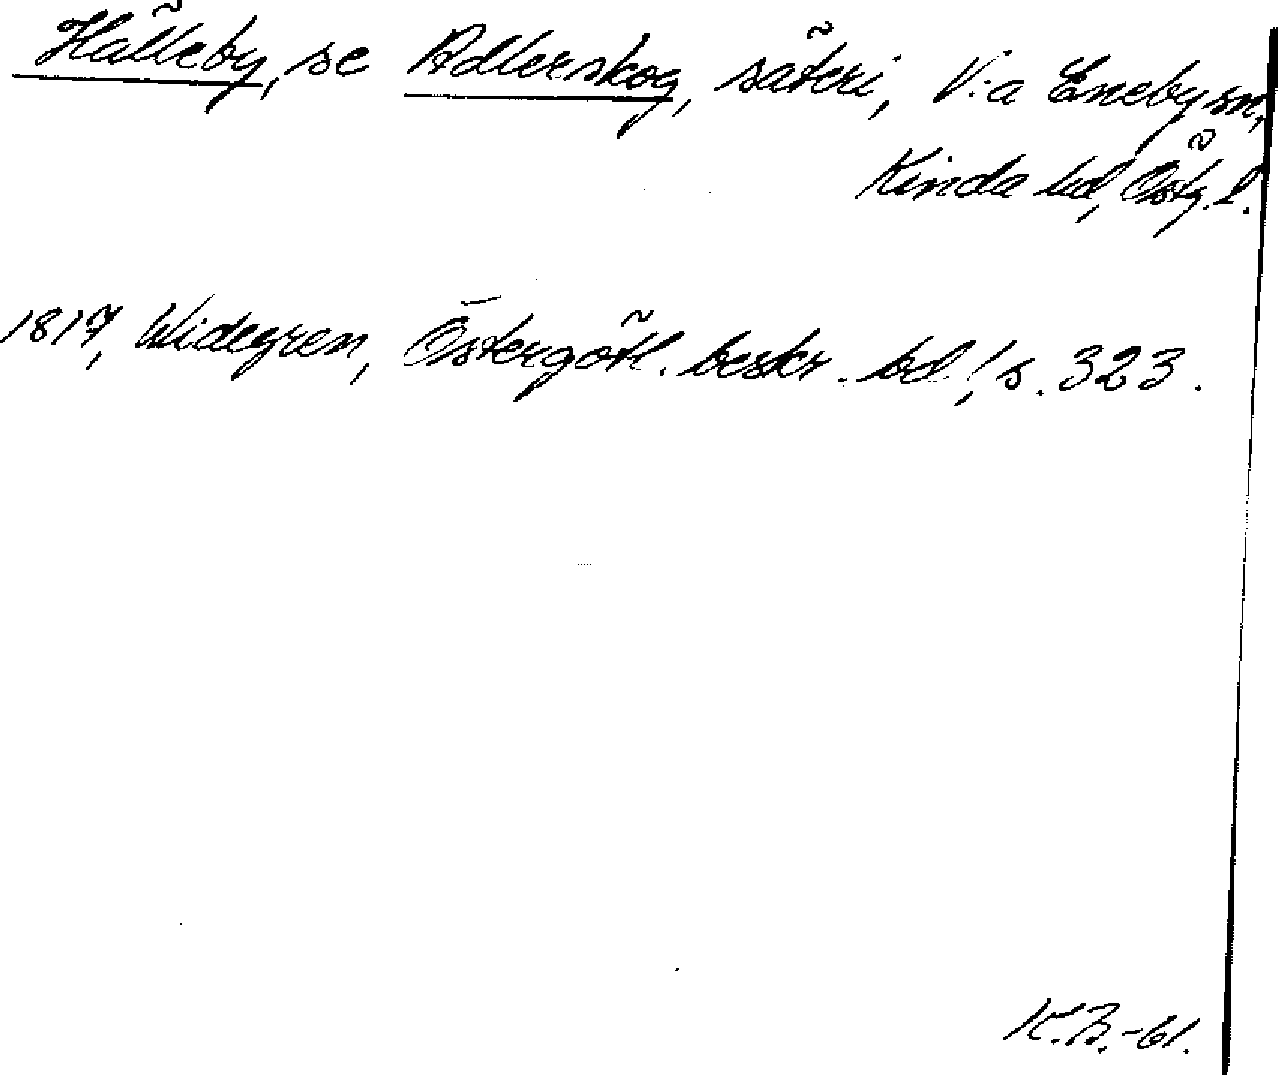 Hälleby, se Adlerskog, säteri, V:a Eneby sn,
Kinda hd, Östg. l.
1817, Widegren, Östergötl. beskr. bd 1, s. 323.
K.B. -61.